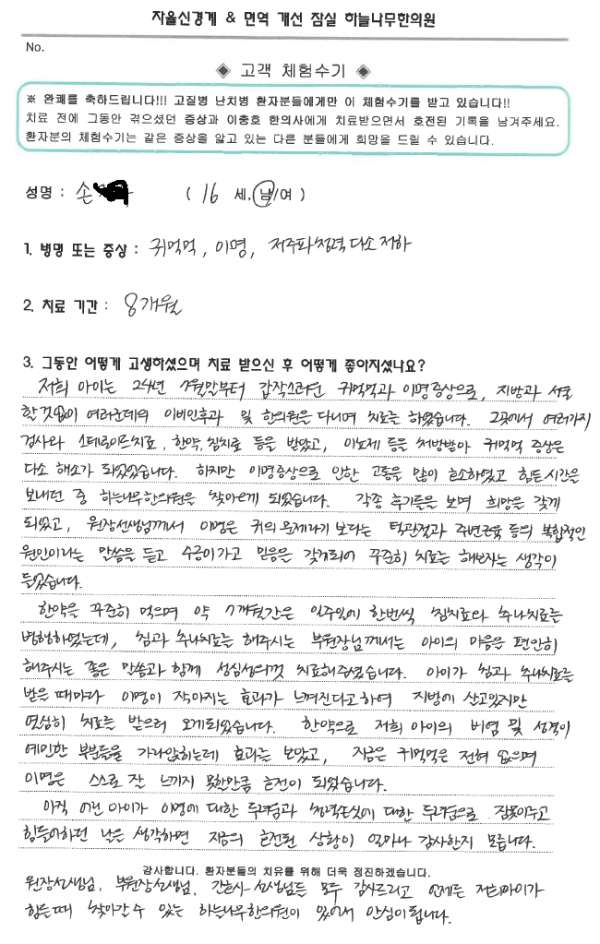 자율신경계 & 면역 개선 잠실 하늘나무한의원
No.
◈ 고객 체험수기 ◈
※ 완쾌를 축하드립니다!!! 고질병 난치병 환자분들에게만 이 체험수기를 받고 있습니다!!
치료 전에 그동안 겪으셨던 증상과 이충호 한의사에게 치료받으면서 호전된 기록을 남겨주세요.
환자분의 체험수기는 같은 증상을 앓고 있는 다른 분들에게 희망을 드릴 수 있습니다.
성명 : 손 ( 16 세, 남/여 )
1. 병명 또는 증상 : 귀먹먹, 이명, 저주파청력 다소 저하
2. 치료 기간 : 8개월
3. 그동안 어떻게 고생하셨으며 치료 받으신 후 어떻게 좋아지셨나요?
저희 아이는 24년 7월말부터 갑작스러운 귀먹먹과 이명증상으로, 지방과 서울
할것없이 여러군데의 이비인후과 및 한의원을 다니며 치료를 하였습니다. 그곳에서 여러가지
검사와 스테로이드치료, 한약, 침치료 등을 받았고, 이뇨제 등을 처방받아 귀먹먹 증상은
다소 해소가 되었었습니다. 하지만 이명증상으로 인한 고통을 많이 호소하였고 힘든시간을
보내던 중 하늘나무한의원을 찾아오게 되었습니다. 각종 후기들을 보며 희망을 갖게
되었고, 원장선생님께서 이명은 귀의 문제라기 보다는 턱관절과 주변근육 등의 복합적인
원인이라는 말씀을 듣고 수긍이가고 믿음을 갖게되어 꾸준히 치료를 해보자는 생각이
들었습니다.
한약을 꾸준히 먹으며 약 7개월간은 일주일에 한번씩 침치료와 추나치료를
병행하였는데, 침과 추나치료를 해주시는 부원장님께서는 아이의 마음을 편안히
해주시는 좋은 말씀과 함께 성심성의껏 치료해주셨습니다. 아이가 침과 추나치료를
받을 때마다 이명이 작아지는 효과가 느껴진다고하여 지방에 살고있지만
열심히 치료를 받으러 오게되었습니다. 한약으로 저희 아이의 비염 및 성격이
예민한 부분들을 가라앉히는데 효과를 보았고, 지금은 귀먹먹은 전혀 없으며
이명은 스스로 잘 느끼지 못할만큼 호전이 되었습니다.
아직 어린 아이가 이명에 대한 두려움과 청력손실에 대한 두려움으로 잠못이루고
힘들어하던 날을 생각하면 지금의 호전된 상황이 얼마나 감사한지 모릅니다.
감사합니다. 환자분들의 치유를 위해 더욱 정진하겠습니다.
원장선생님, 부원장선생님, 간호사 선생님들 모두 감사드리고 언제든 저희아이가
힘든때 찾아갈수 있는 하늘나무한의원이 있어서 안심이됩니다.